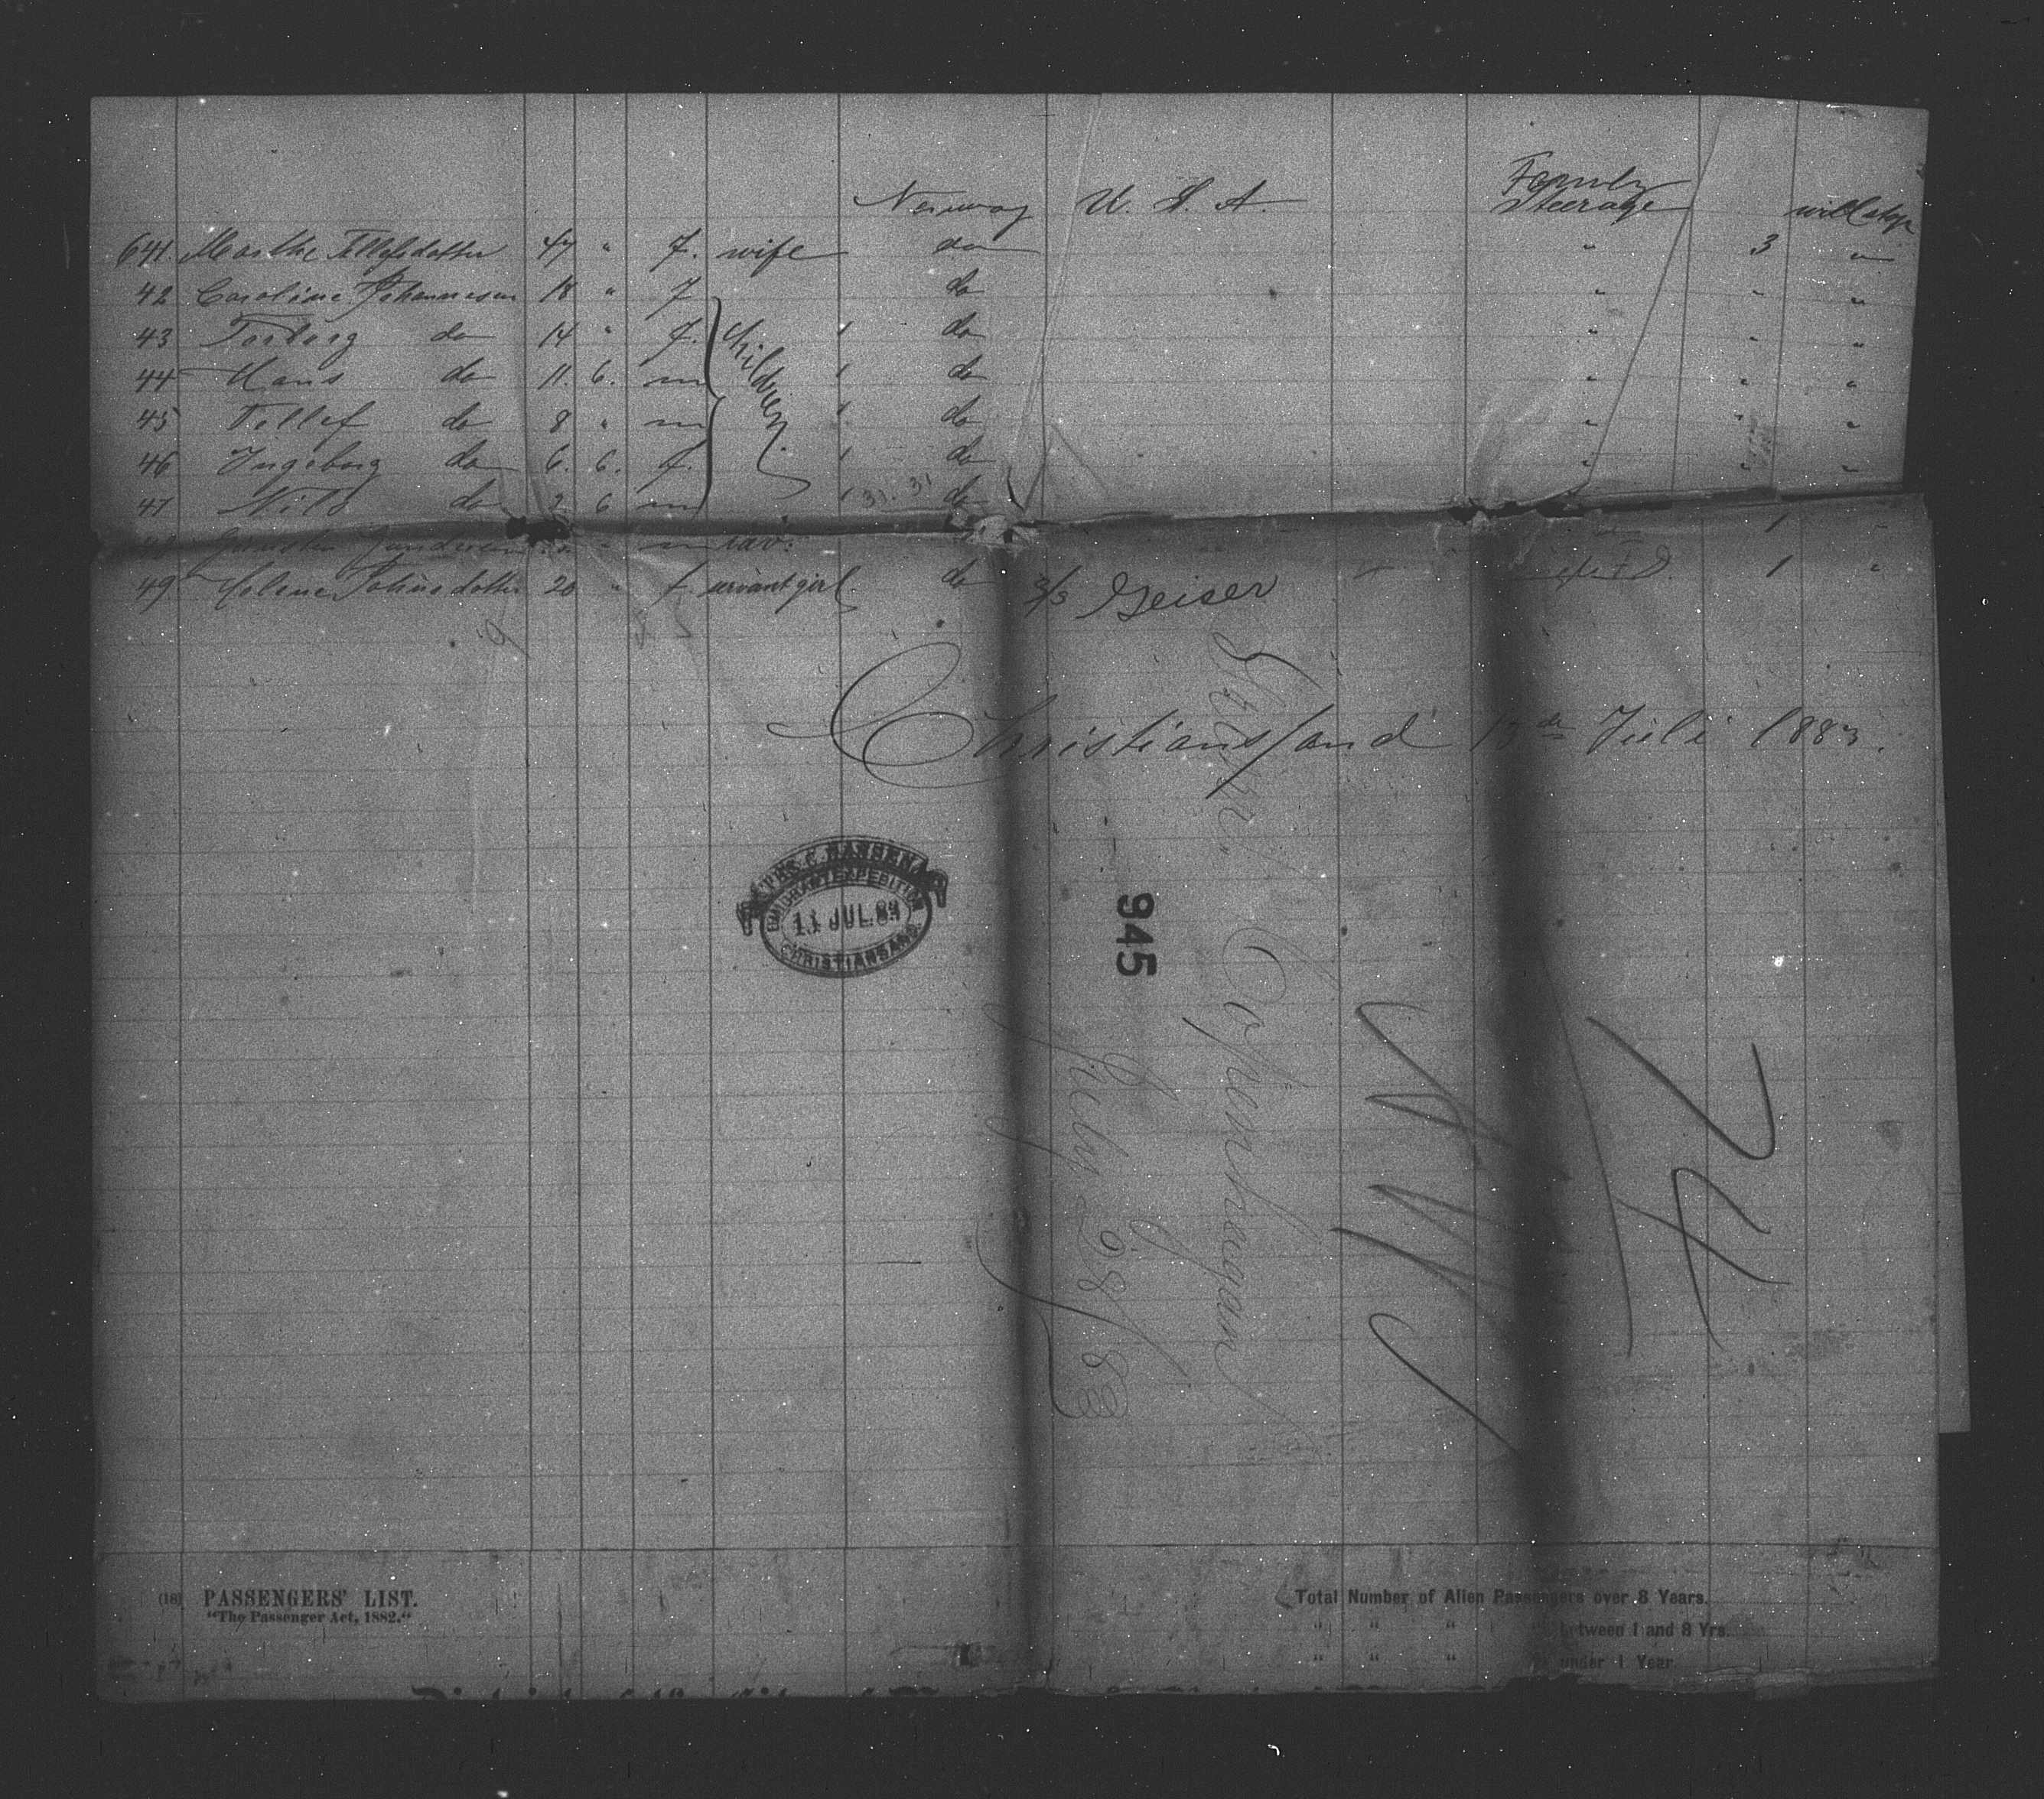 Norway U. S. A. Family
Steerage will stay
641. Marthe Ellefsdatter 47 " f. wife do " 3 "
42 Caroline Johannesen 18 " f do " " "
43 Torborg do 14 " f. Children 1 do " " "
44 Hans do 11. 6. m 1 do " " "
45 Tellef do 8 " m 1 do " " "
46 Ingeborg do 6. 6. f. 1 do " " "
47 Nils do 2 6 m 1 31. 31 do
m lab: 1 "
49 Helene Johnsdatter 20 " f servant girl do 1 "
S/S Geiser
Christianssand 13de Juli 1883.
C. HANSEN
EMIGRANTEXPEDITION
JUL.
CHRISTIANSAND.
945
Copenhagen
July 28/83
74
(18) PASSENGERS' LIST.
"The Passenger Act, 1882."
Total Number of Alien Passengers over 8 Years.
" " " between 1 and 8 Yrs.
" " " under 1 Year